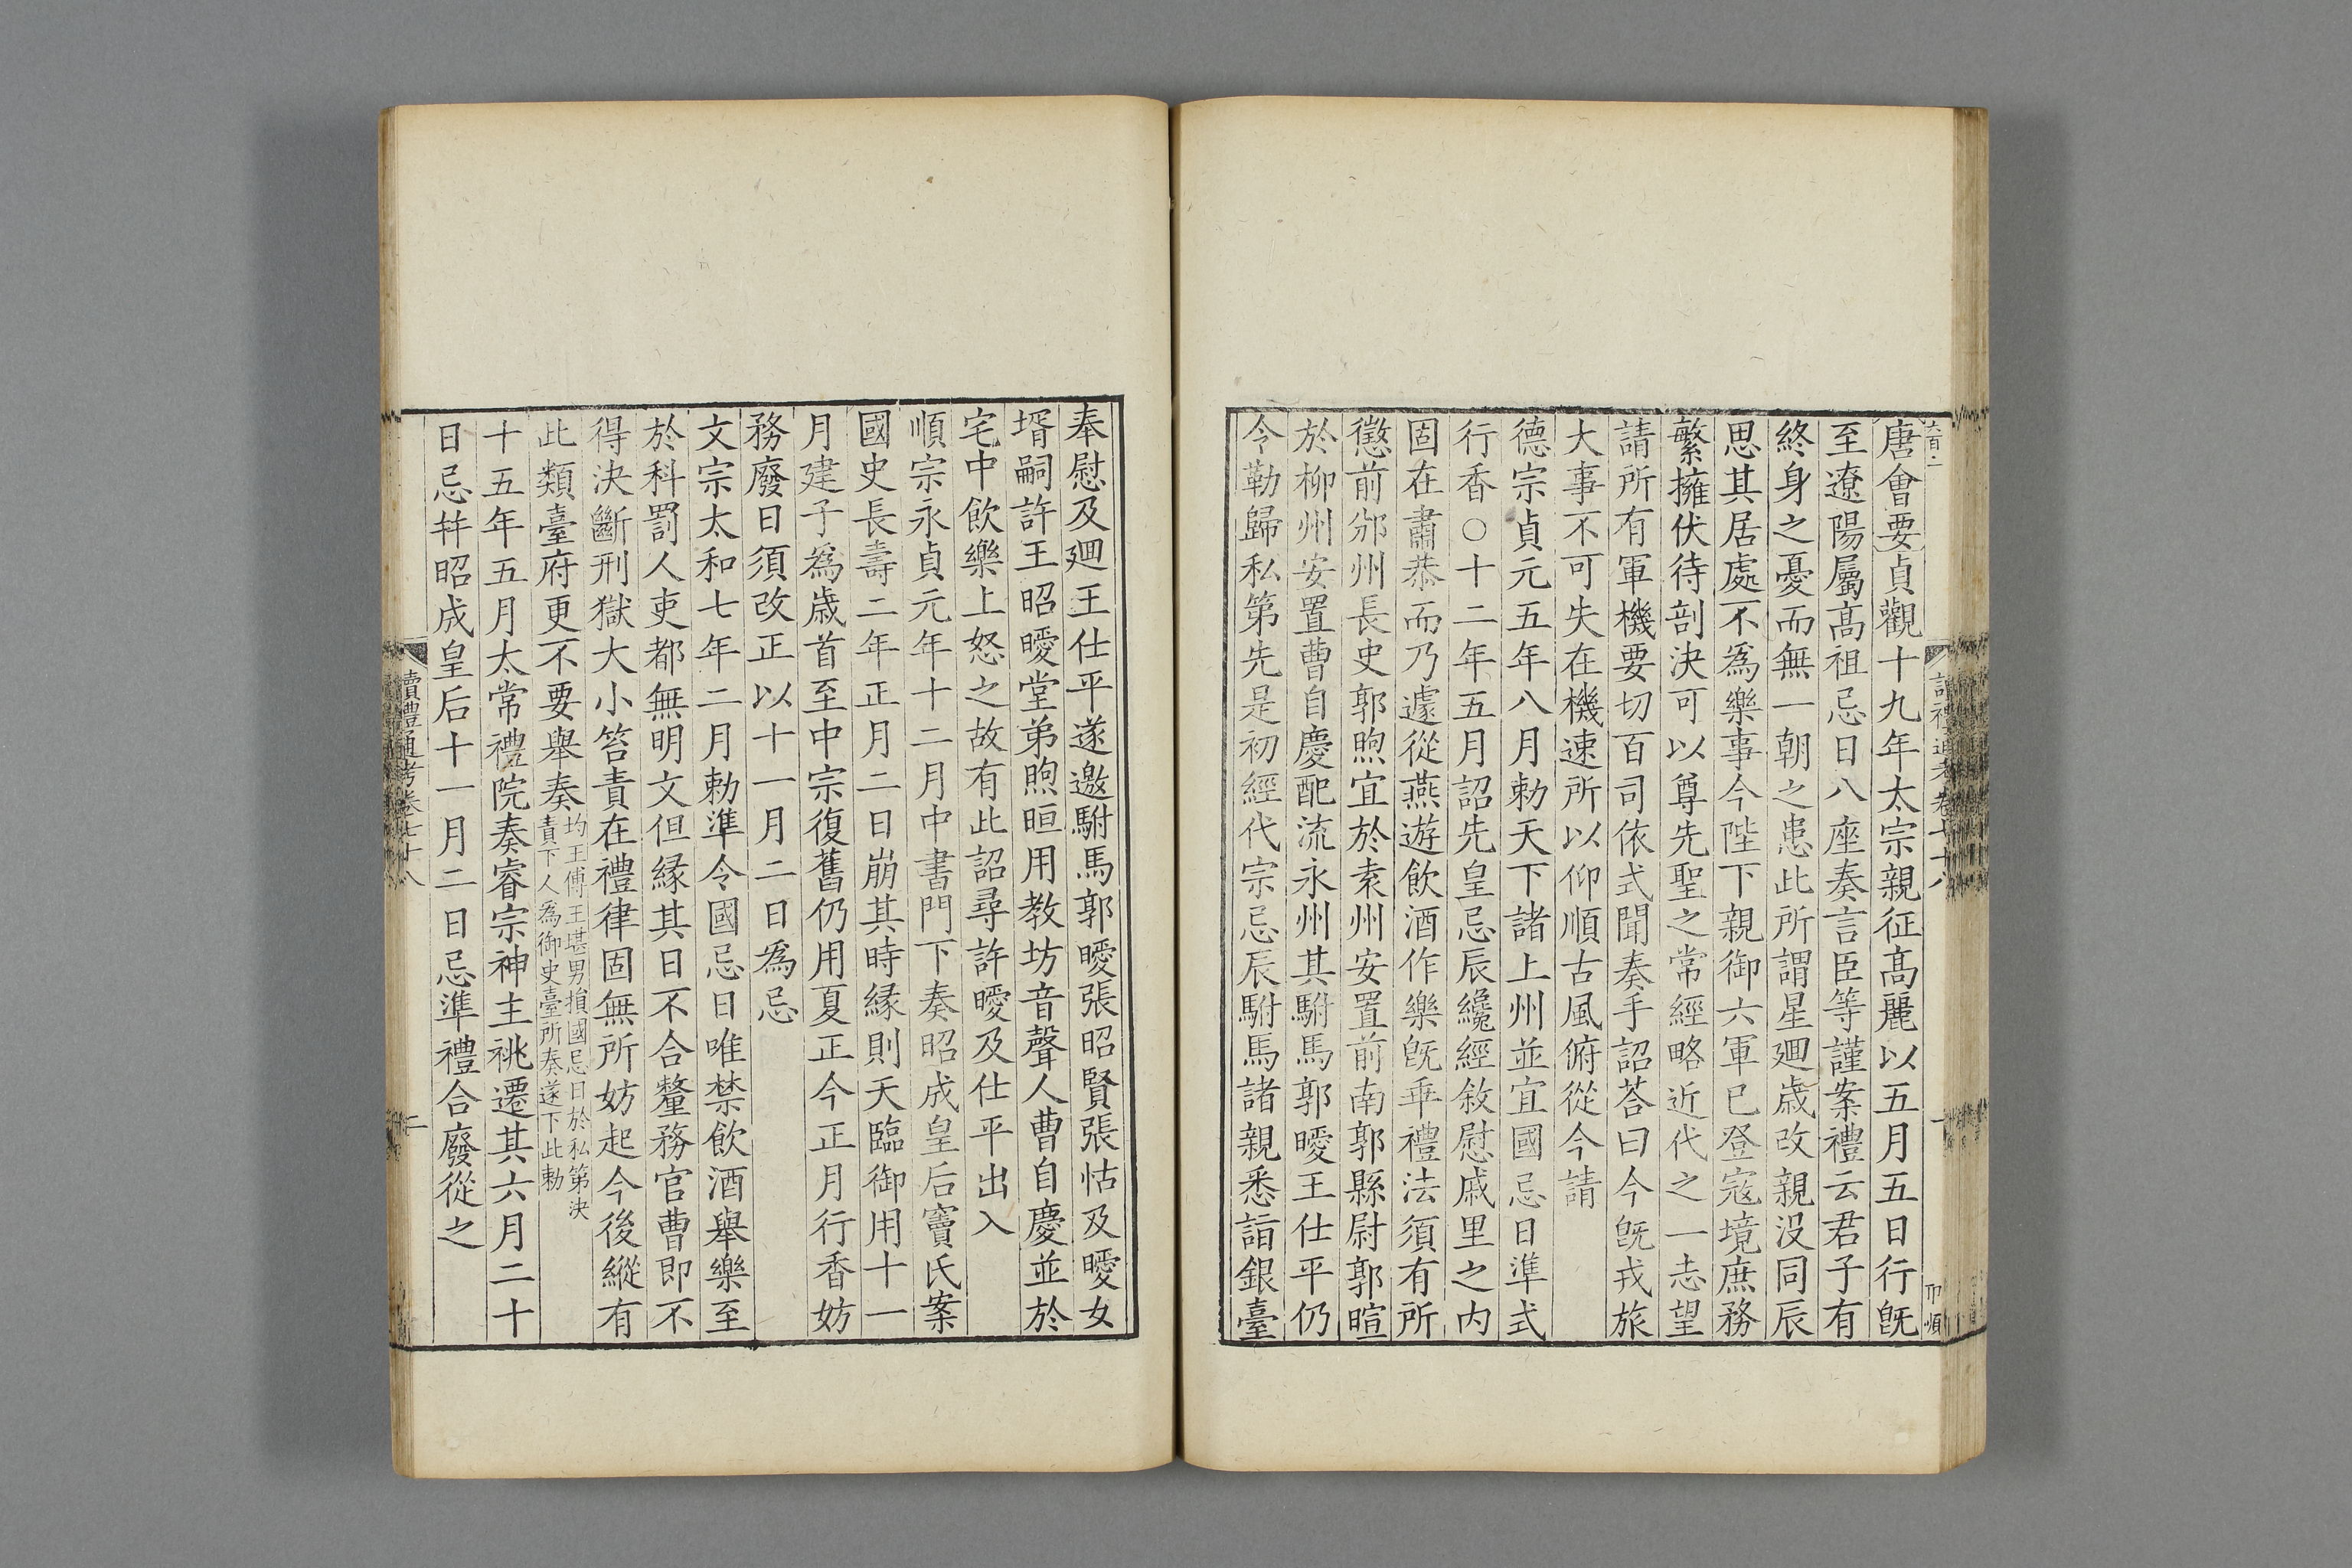 唐會要貞觀十九年太宗親征髙麗以五月五日行旣
至遼陽屬髙祖忌日八座奏言臣等謹案禮云君子有
終身之憂而無一朝之患此所謂星廻歲改親没同辰
思其居處不爲樂事今陛下親御六軍已登寇境庶務
繁擁伏待剖決可以尊先聖之常經略近代之一志望
請所有軍機要切百司依式聞奏手詔荅曰今旣戎旅
大事不可失在機速所以仰順古風俯從今請
德宗貞元五年八月勅天下諸上州並宜國忌日準式
行香○十二年五月詔先皇忌辰纔經敘慰戚里之内
固在肅恭而乃遽從燕遊飲酒作樂旣乖禮法須有所
懲前邠州長史郭煦宜於袁州安置前南郭縣尉郭暄
於柳州安置曹自慶配流永州其駙馬郭曖王仕平仍
令勒歸私第先是初經代宗忌辰駙馬諸親悉詣銀臺
奉慰及廻王仕平遂邀駙馬郭曖張昭賢張怙及曖女
壻嗣許王昭曖堂弟煦晅用教坊音聲人曹自慶並於
宅中飲樂上怒之故有此詔尋許曖及仕平出入
順宗永貞元年十二月中書門下奏昭成皇后竇氏案
國史長壽二年正月二日崩其時緣則天臨御用十一
月建子爲歲首至中宗復舊仍用夏正今正月行香妨
務廢日須改正以十一月二日爲忌
文宗太和七年二月勅準令國忌日唯禁飲酒舉樂至
於科罰人吏都無明文但緣其日不合釐務官曹即不
得決斷刑獄大小笞責在禮律固無所妨起今後縱有
此類臺府更不要舉奏均王傅王堪男損國忌日於私第決
責下人爲御史臺所奏遂下此勅
十五年五月太常禮院奏睿宗神主祧遷其六月二十
日忌幷昭成皇后十一月二日忌準禮合廢從之
讀禮通考卷七十八
二